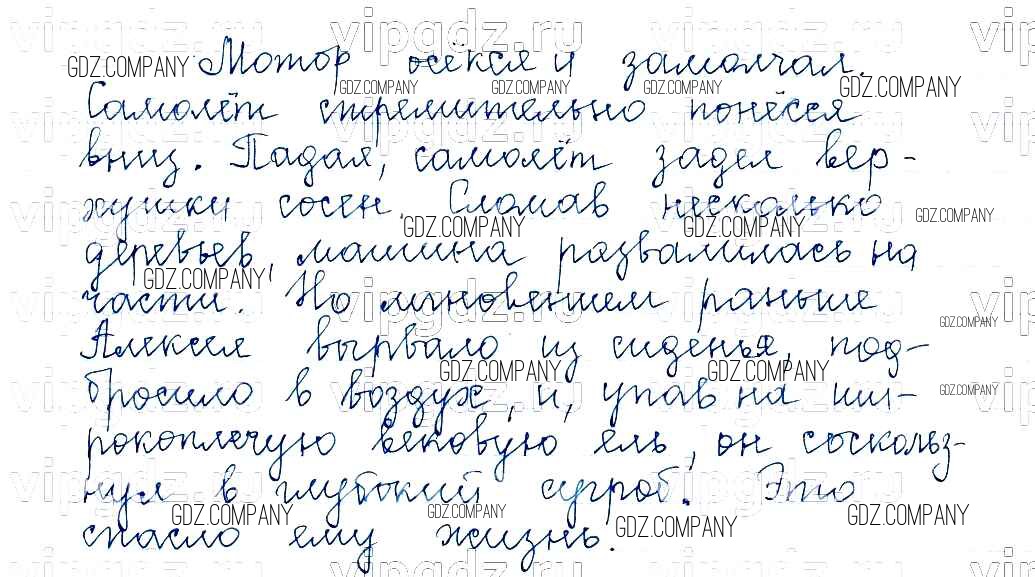 Мотор осёкся и замолчал.
Самолёт стремительно понёсся
вниз. Падая, самолёт задел вер-
хушки сосен. Сломав несколько
деревьев, машина развалилась на
части. Но мгновением раньше
Алексея вырвало из сиденья, под-
бросило в воздух, и, упав на ши-
рокоплечую вековую ель, он соскольз-
нул в глубокий сугроб. Это
спасло ему жизнь.